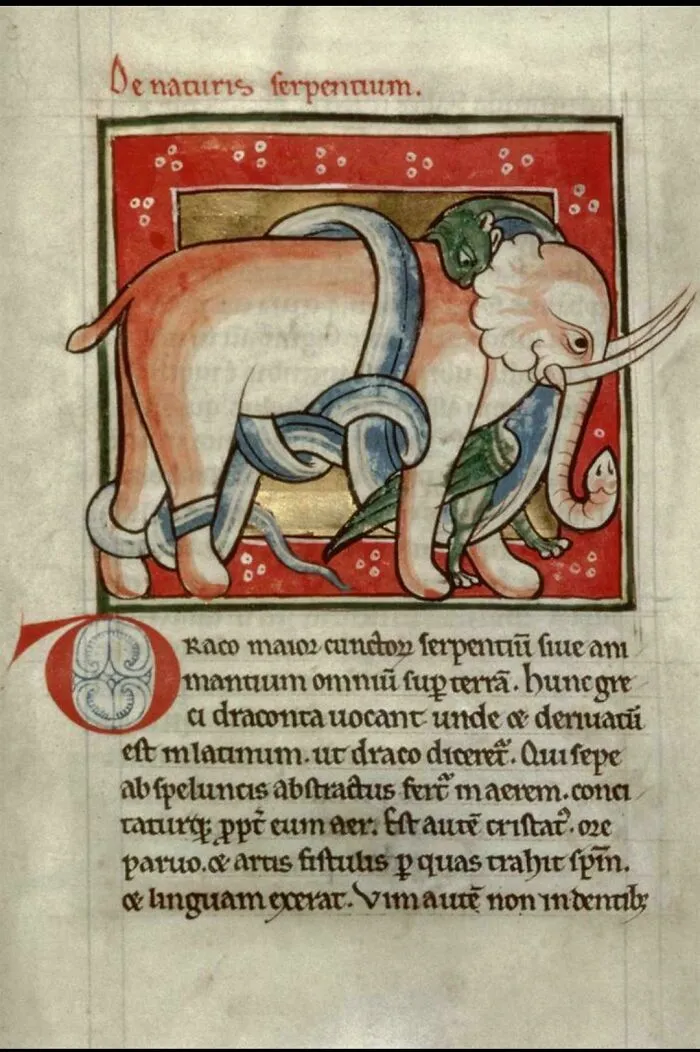 De naturis serpentium.
Draco maior cunctoꝝ serpentiū siue ani
mantium omniū suꝑ terrā. hunc gre
ci draconta uocant unde ⁊ deriuatū
est in latinum. ut draco diceret᷑. Qui sepe
ab speluncis abstractus fert᷑ in aerem. conci
taturqꝫ ꝓpt̄ eum aer. Est autē cristatꝰ. ore
paruo. ⁊ artis fistulis ꝑ quas trahit sp̄m.
⁊ linguam exerat. Vim autē non in dentibꝫ